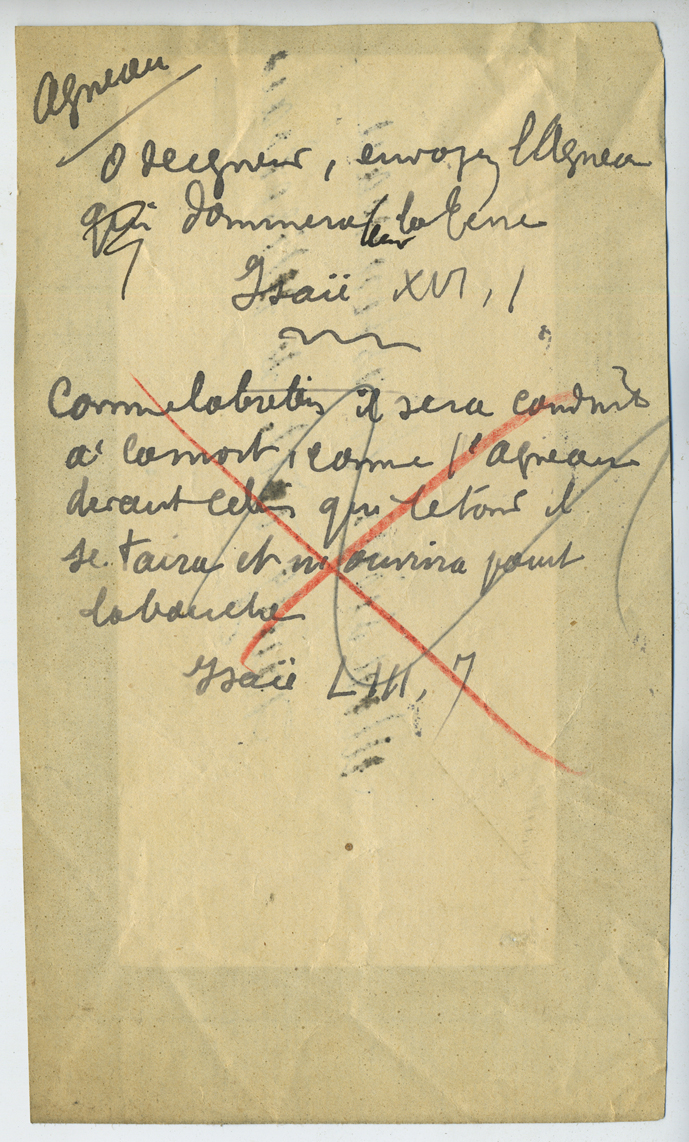 Agneau
O seigneur, envoyez l'Agneau
qui dominera sur la terre
Isaïe XVI, 1
Comme la brebis il sera conduit
à la mort, comme l'agneau
devant celui qui le tond il
se taira et n'ouvrira point
la bouche
Isaïe LIII, 7